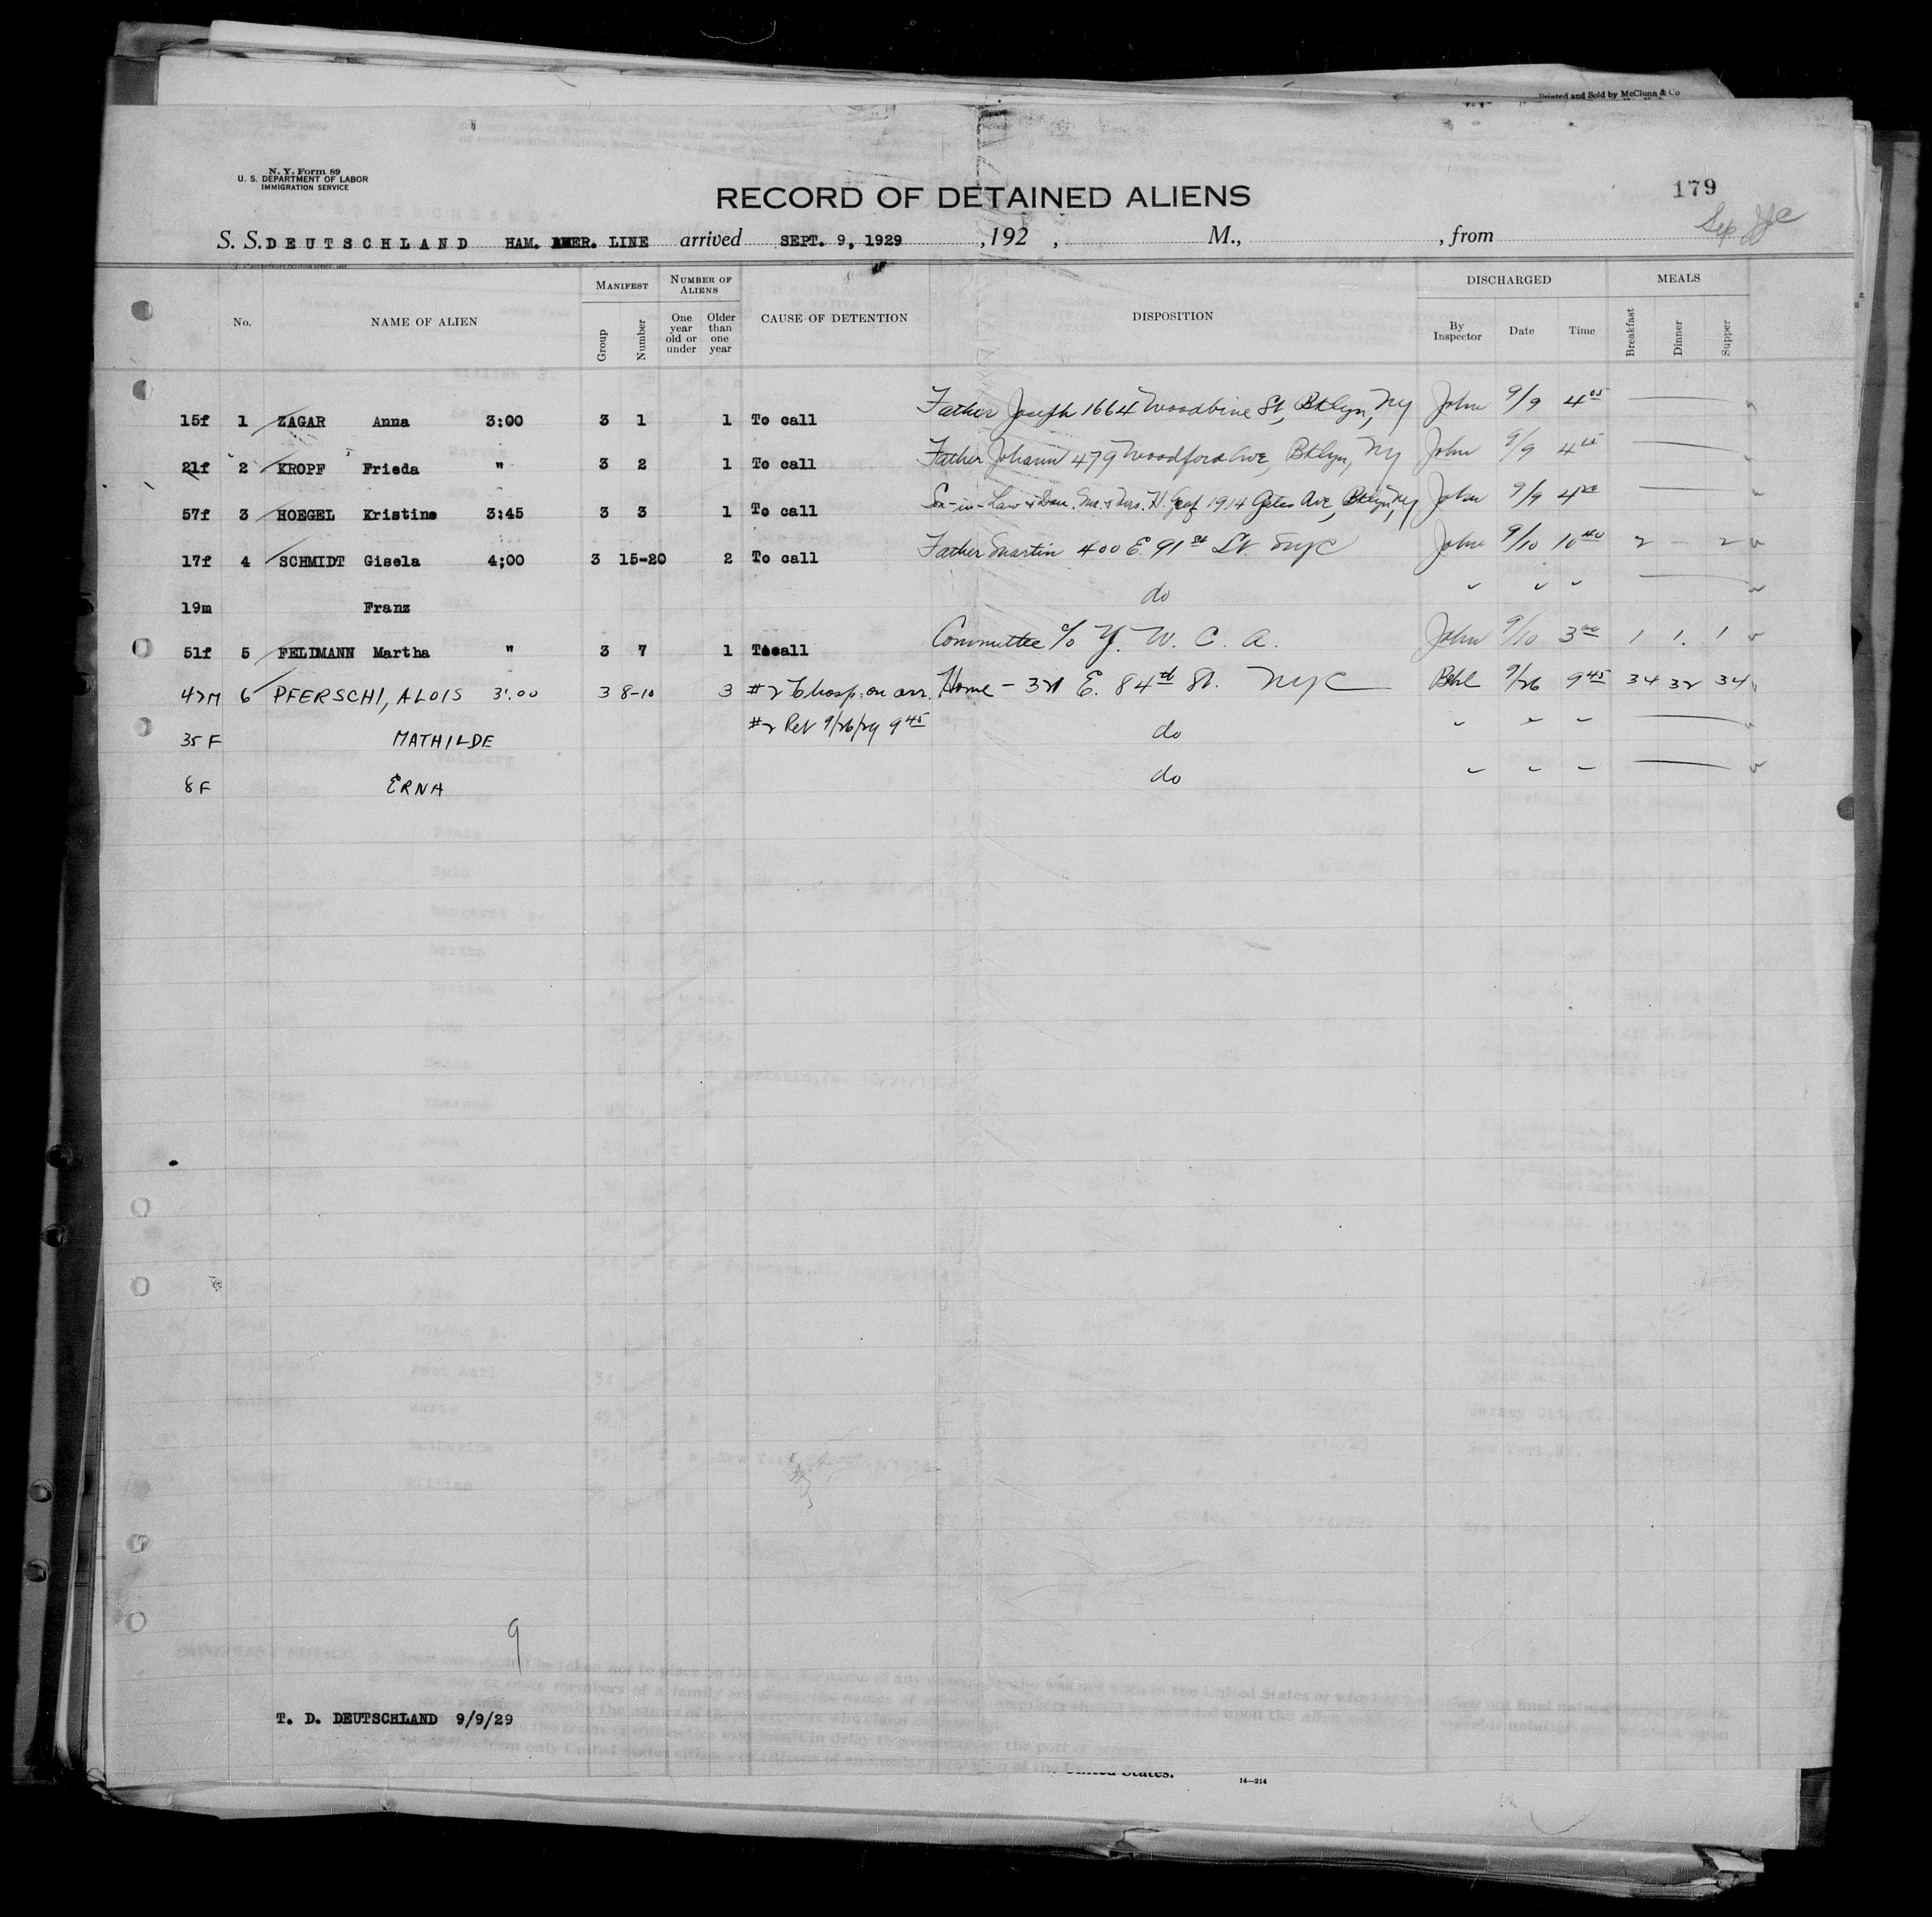 Printed and Sold by McClunn & Co
N. Y. Form 89
U. S. DEPARTMENT OF LABOR
IMMIGRATION SERVICE
RECORD OF DETAINED ALIENS
179
S. S. DEUTSCHLAND HAM. AMER. LINE arrived SEPT. 9, 1929 , 192 , M., , from
No. NAME OF ALIEN MANIFEST Group Number NUMBER OF ALIENS One year old or under Older than one year CAUSE OF DETENTION DISPOSITION DISCHARGED By Inspector Date Time MEALS Breakfast Dinner Supper
15f 1 ZAGAR Anna 3:00 3 1 1 To call Father Joseph 1664 Woodbine St, Bklyn, NY John 9/9 4 05
21f 2 KROPF Frieda " 3 2 1 To call Father Johann 479 Woodford Ave, Bklyn, NY John 9/9 4
57f 3 HOEGEL Kristine 3:45 3 3 1 To call Son-in-Law & Dau. Mr. & Mrs. H. Graf 1914 Gates Ave, Bklyn, NY John 9/9 4 20
17f 4 SCHMIDT Gisela 4;00 3 15-20 2 To call Father Martin 400 E. 91st St. NYC John 9/10 10 40 2 — 2
19m Franz do " " "
51f 5 FELDMANN Martha " 3 7 1 To call Committee c/o Y. W. C. A. John 9/10 3 00 1 1. 1
42M 6 PFERSCHI, ALOIS 3:00 3 8-10 3 #2 to hosp. on arr. Home - 321 E. 84th St. NYC 9/26 9 45 34 32 34
#2 Ret 9/26/29 9 45
35 F MATHILDE do " " "
8 F ERNA do " " "
9
T. D. DEUTSCHLAND 9/9/29
United States.
14—214